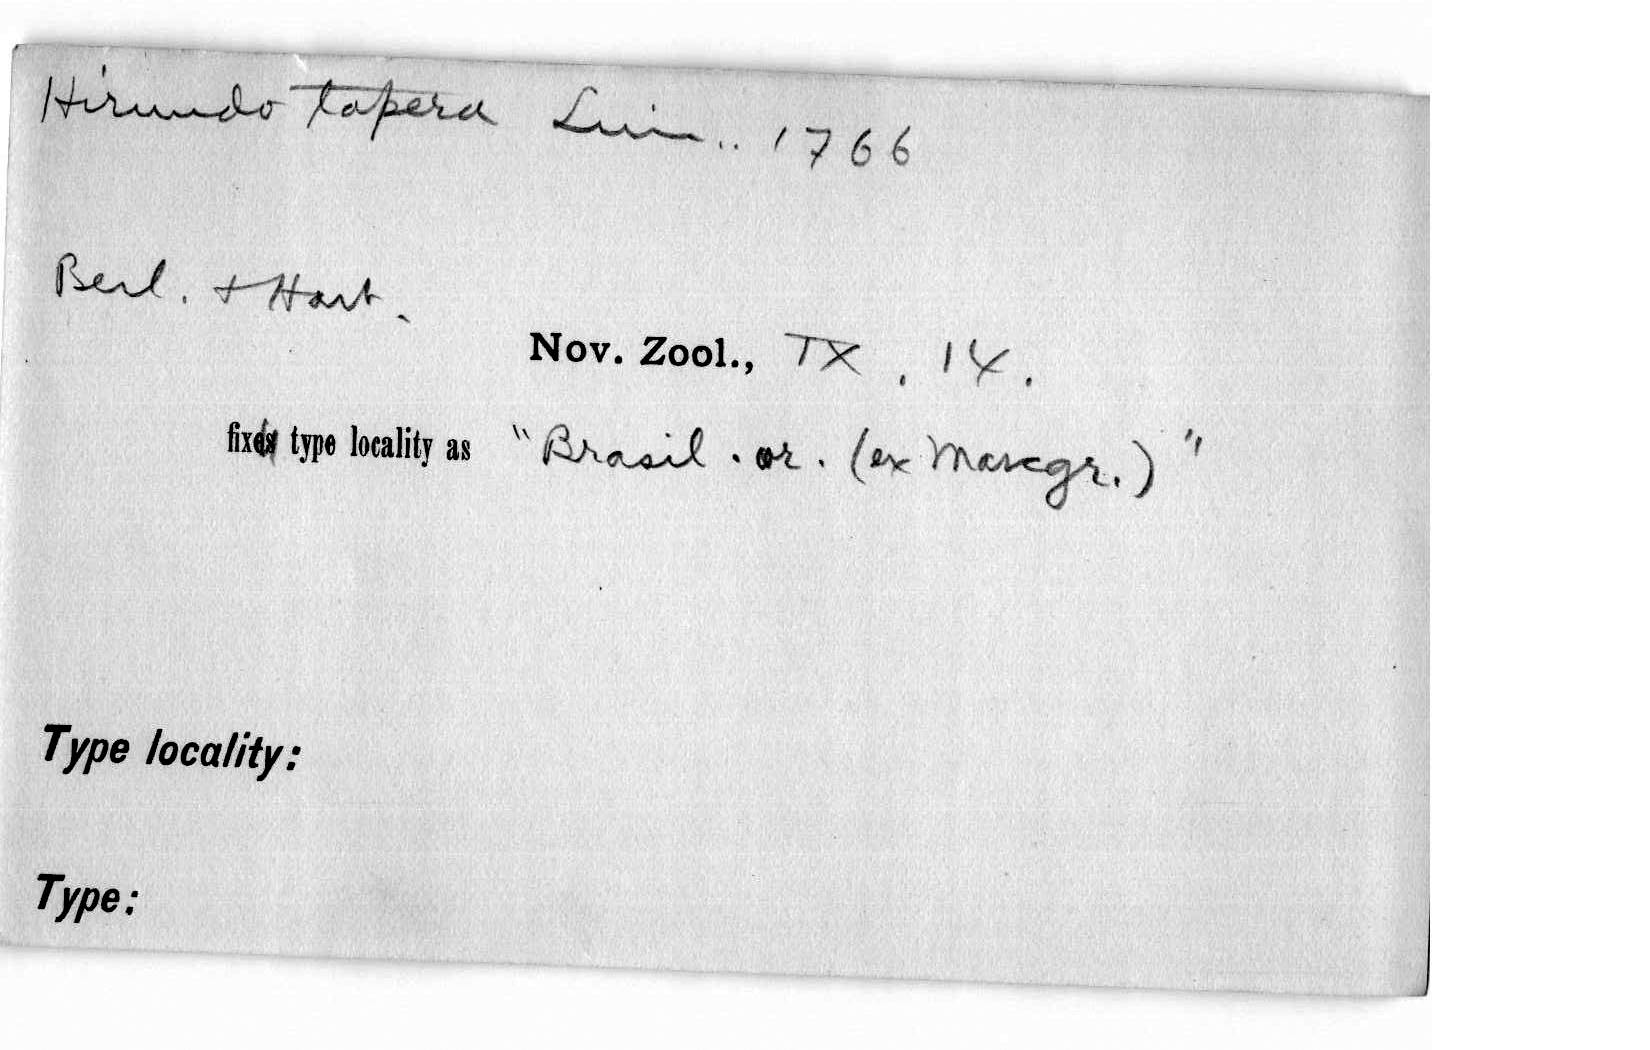 Hirundo tapera Linn.. 1766
Berl. + Hart.
Nov. Zool., IX, 14.
fix type locality as "Brasil. or. (ex Marcgr.)"
Type locality:
Type: